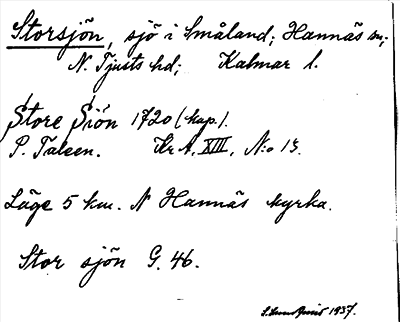 Storsjön, sjö i Småland; Hannäs sn;
N. Tjusts hd; Kalmar l.
Store Siön 1720 (kap.).
P. Taleen. Kr A, XIII, N:o 13.
Läge 5 km. N Hannäs kyrka.
Stor sjön G. 46.
1937.